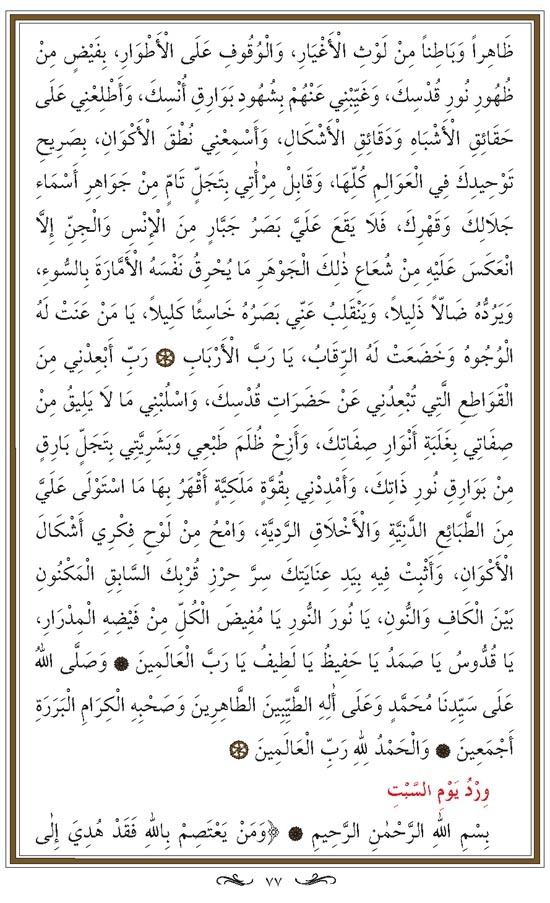 ظَاهِراً وَبَاطِناً مِنْ لَوْثِ الْأَغْيَارِ، وَالْوُقُوفِ عَلَى الْأَطْوَارِ، بِفَيْضٍ مِنْ
ظُهُورِ نُورِ قُدْسِكَ، وَغَيِّبْنِي عَنْهُمْ بِشُهُودِ بَوَارِقِ أُنْسِكَ، وَأَطْلِعْنِي عَلَى
حَقَائِقِ الْأَشْبَاهِ وَدَقَائِقِ الْأَشْكَالِ، وَأَسْمِعْنِي نُطْقَ الْأَكْوَانِ، بِصَرِيحِ
تَوْحِيدِكَ فِي الْعَوَالِمِ كُلِّهَا، وَقَابِلْ مِرْاٰتِي بِتَجَلٍّ تَامٍّ مِنْ جَوَاهِرِ أَسْمَاءِ
جَلَالِكَ وَقَهْرِكَ، فَلَا يَقَعَ عَلَيَّ بَصَرُ جَبَّارٍ مِنَ الْإِنْسِ وَالْجِنِّ إِلَّا
انْعَكَسَ عَلَيْهِ مِنْ شُعَاعِ ذٰلِكَ الْجَوْهَرِ مَا يُحْرِقُ نَفْسَهُ الْأَمَّارَةَ بِالسُّوءِ،
وَيَرُدُّهُ ضَالّاً ذَلِيلاً، وَيَنْقَلِبُ عَنِّي بَصَرُهُ خَاسِئًا كَلِيلاً، يَا مَنْ عَنَتْ لَهُ
الْوُجُوهُ وَخَضَعَتْ لَهُ الرِّقَابُ، يَا رَبَّ الْأَرْبَابِ رَبِّ أَبْعِدْنِي مِنَ
الْقَوَاطِعِ الَّتِي تُبْعِدُنِي عَنْ حَضَرَاتِ قُدْسِكَ، وَاسْلُبْنِي مَا لَا يَلِيقُ مِنْ
صِفَاتِي بِغَلَبَةِ أَنْوَارِ صِفَاتِكَ، وَأَزِحْ ظُلَمَ طَبْعِي وَبَشَرِيَّتِي بِتَجَلِّ بَارِقٍ
مِنْ بَوَارِقِ نُورِ ذَاتِكَ، وَأَمْدِدْنِي بِقُوَّةٍ مَلَكِيَّةٍ أَقْهَرُ بِهَا مَا اسْتَوْلَى عَلَيَّ
مِنَ الطَّبَائِعِ الدَّنِيَّةِ وَالْأَخْلَاقِ الرَّدِيَّةِ، وَامْحُ مِنْ لَوْحِ فِكْرِي أَشْكَالَ
الْأَكْوَانِ، وَأَثْبِتْ فِيهِ بِيَدِ عِنَايَتِكَ سِرَّ حِرْزِ قُرْبِكَ السَّابِقِ الْمَكْنُونِ
بَيْنَ الْكَافِ وَالنُّونِ، يَا نُورَ النُّورِ يَا مُفِيضَ الْكُلِّ مِنْ فَيْضِهِ الْمِدْرَارِ،
يَا قُدُّوسُ يَا صَمَدُ يَا حَفِيظُ يَا لَطِيفُ يَا رَبَّ الْعَالَمِينَ وَصَلَّى اللهُ
عَلَى سَيِّدِنَا مُحَمَّدٍ وَعَلَى اٰلِهِ الطَّيِّبِينَ الطَّاهِرِينَ وَصَحْبِهِ الْكِرَامِ الْبَرَرَةِ
أَجْمَعِينَ وَالْحَمْدُ لِلهِ رَبِّ الْعَالَمِينَ
وِرْدُ يَوْمِ السَّبْتِ
بِسْمِ اللهِ الرَّحْمٰنِ الرَّحِيمِ ﴿وَمَنْ يَعْتَصِمْ بِاللهِ فَقَدْ هُدِيَ إِلٰى
٧٧